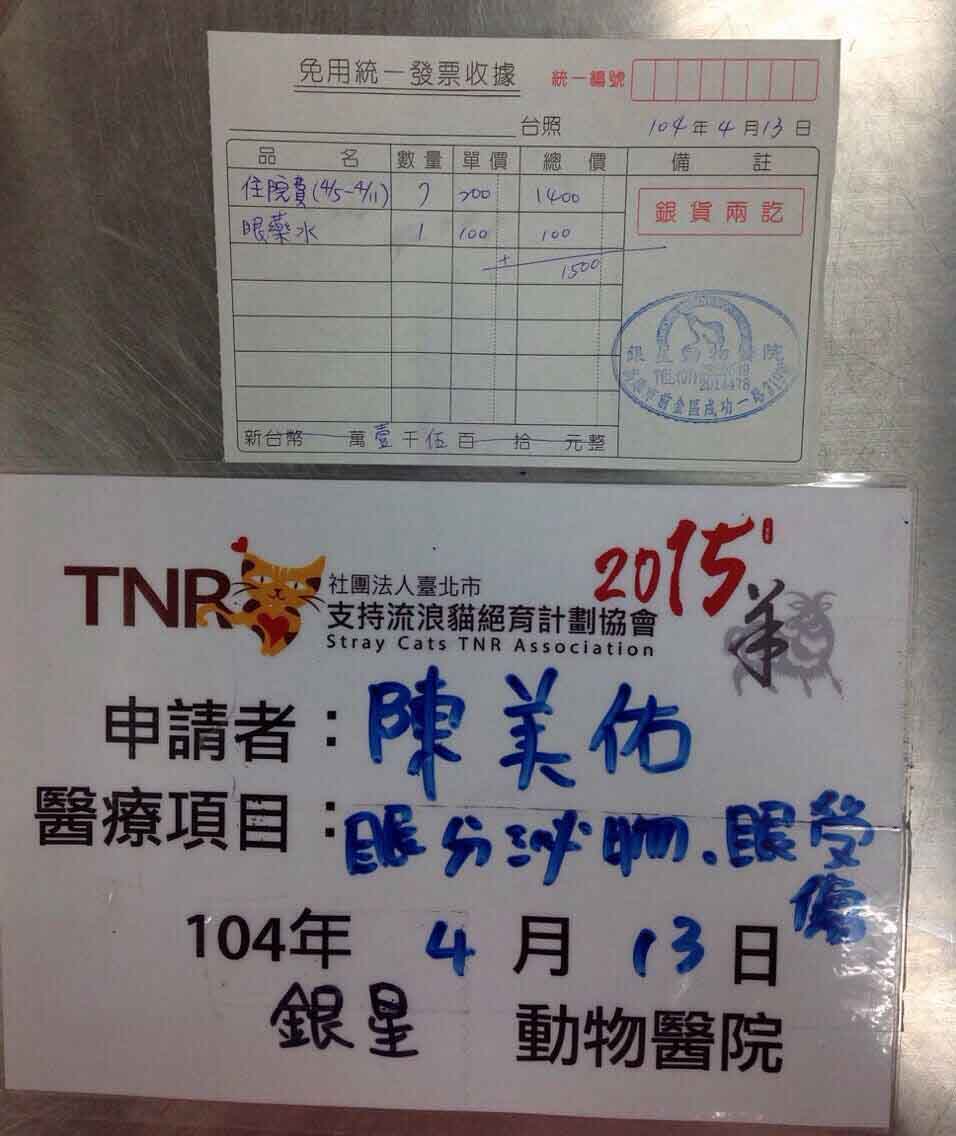 免用統一發票收據 統一編號
台照 104年4月13日
品名 數量 單價 總價 備註
住院費(4/5-4/11) 7 200 1400 銀貨兩訖
眼藥水 1 100 100
+ 1500
銀星動物醫院
TEL:(07)
2014478
前金區成功一路
新台幣 萬壹千伍百 拾 元整
TNR 社團法人臺北市 2015
支持流浪貓絕育計劃協會 羊
Stray Cats TNR Association
申請者：陳美佑
醫療項目：眼分泌物.眼受傷
104年 4 月 13 日
銀星 動物醫院